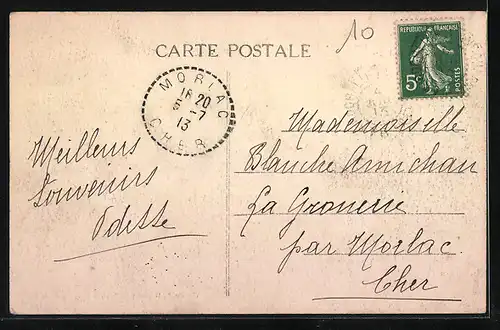 10
REPUBLIQUE FRANÇAISE
5c
POSTES
CARTE POSTALE
MORLAC
16 20
5 -7
13
CHER
Meilleurs
Souvenirs
Odette
Mademoiselle
Blanche Amichau
La Gronerie
par Morlac
Cher